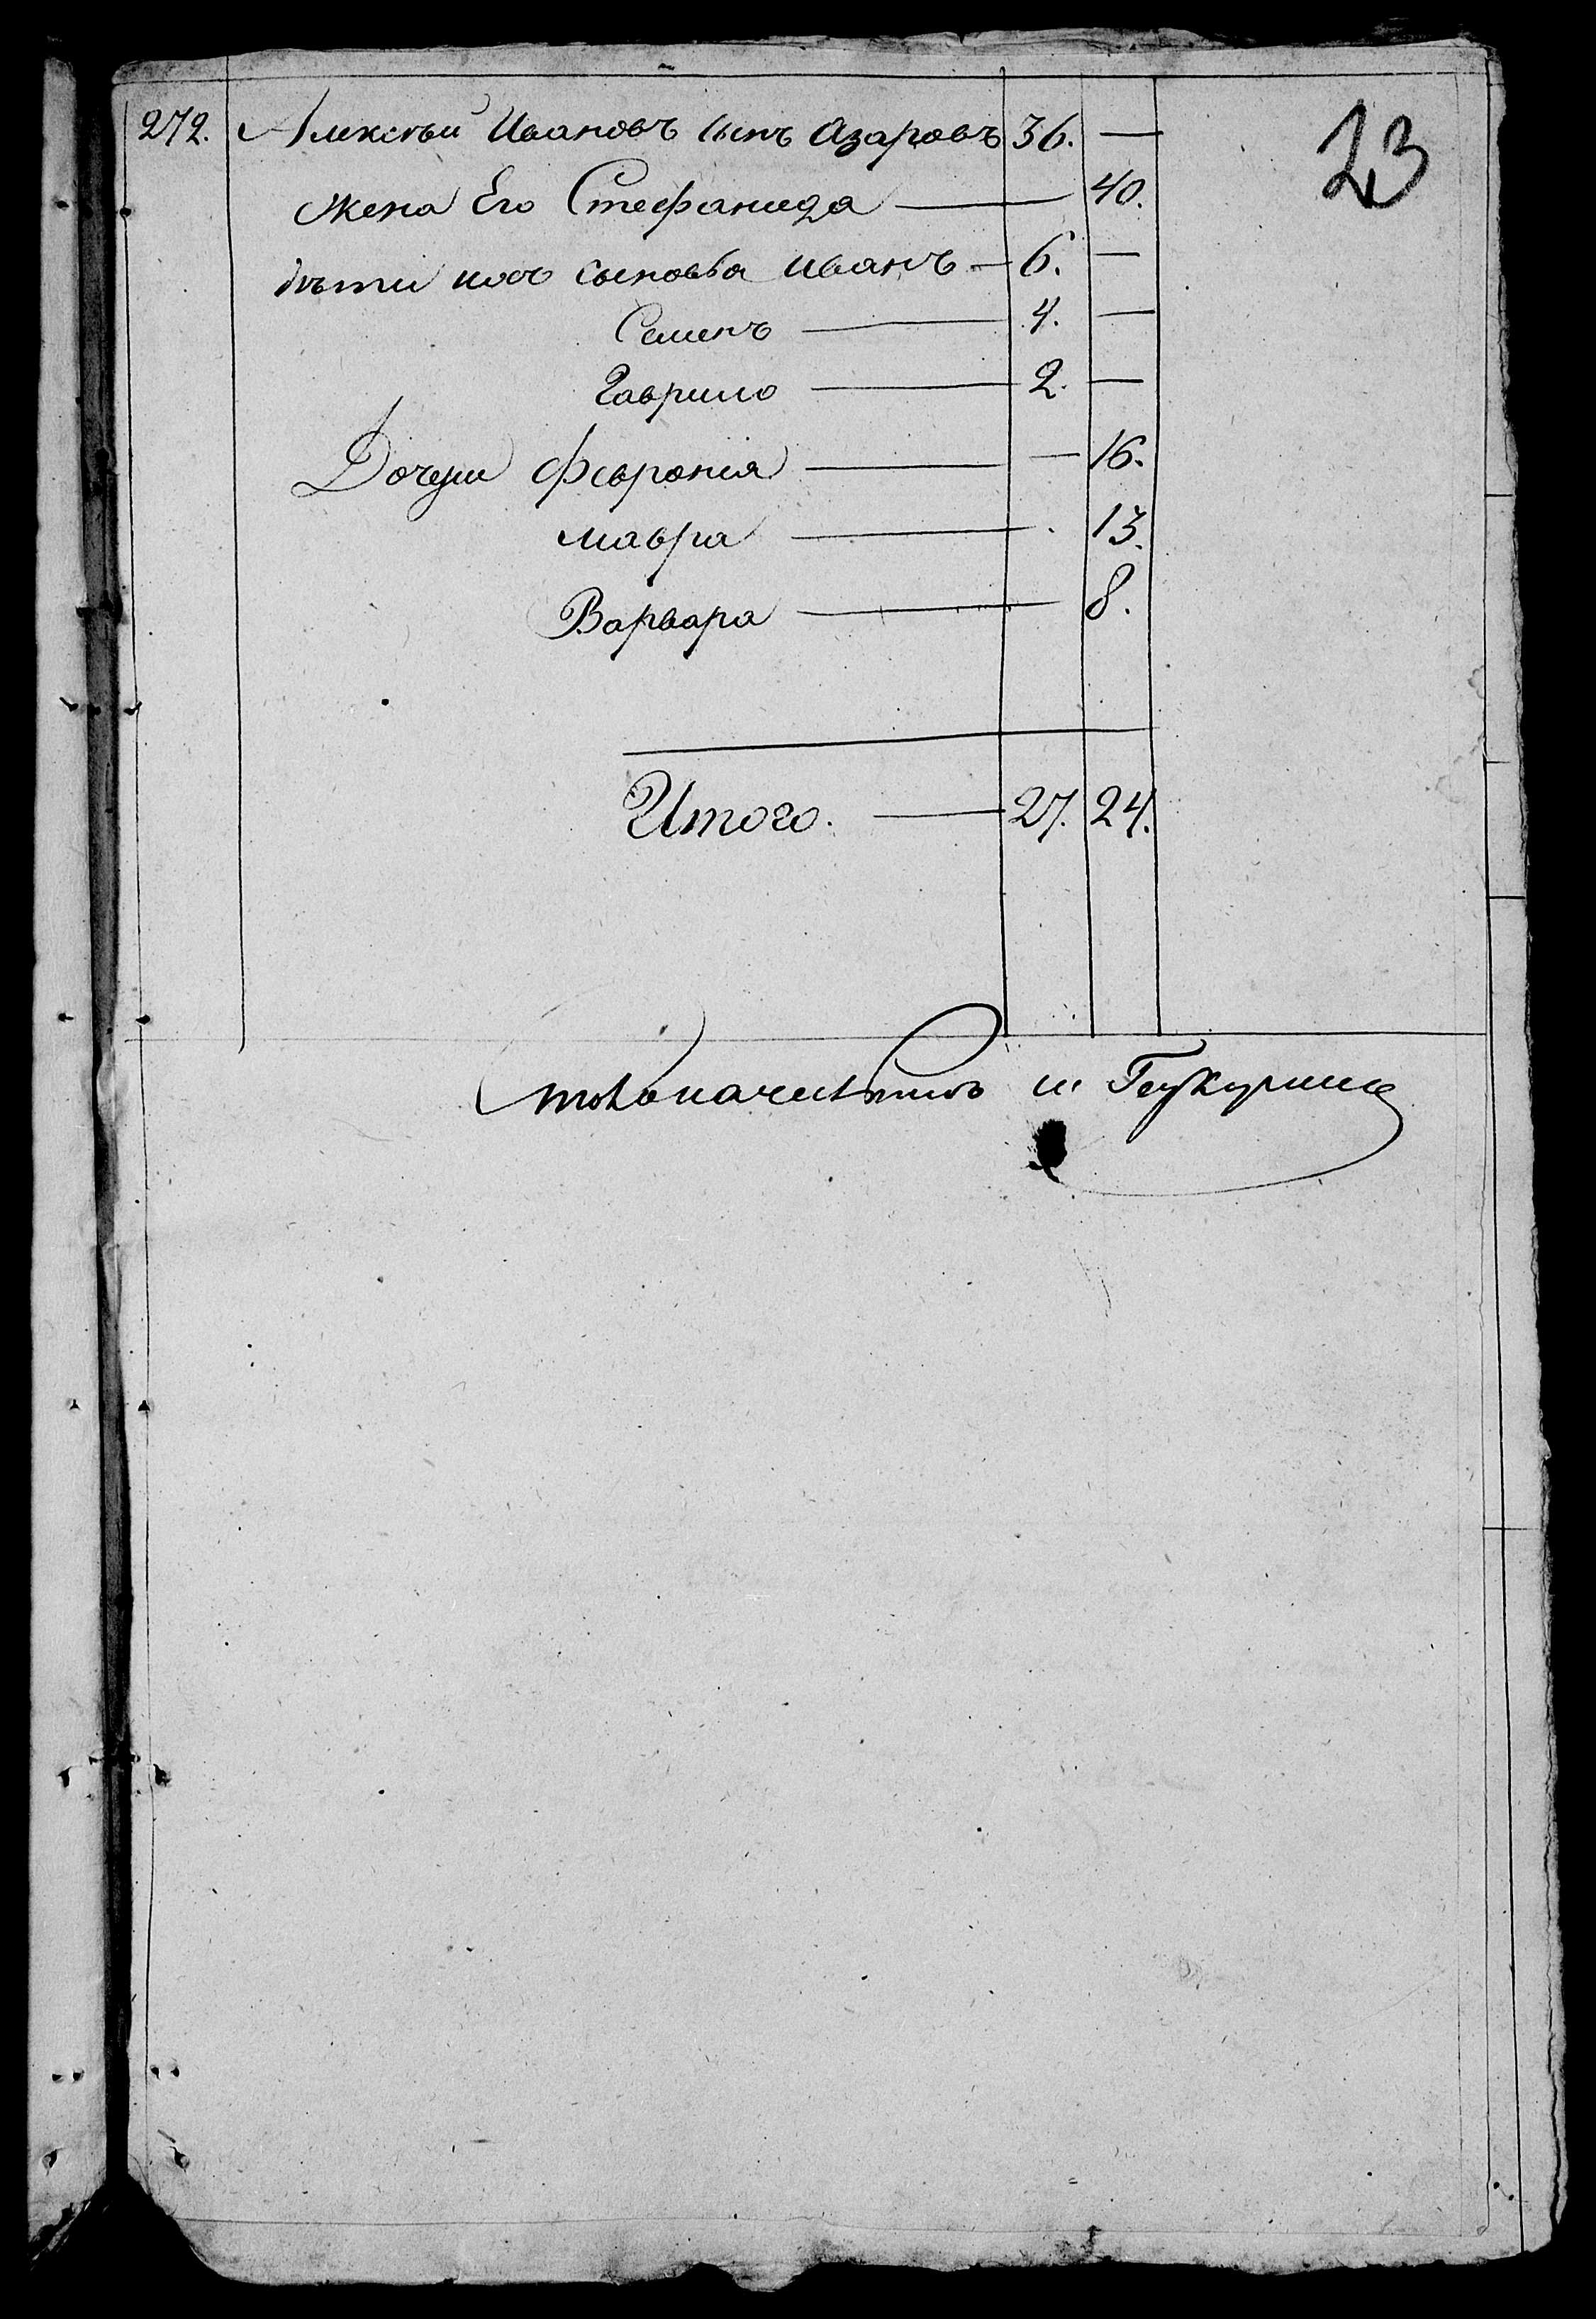 23
272. Алексѣй Ивановъ сынъ Азаровъ 36. —
жена Его Стефанида — 40.
дѣти ихъ сыновья Иванъ — 6. —
Семенъ — 4. —
Гаврило — 2. —
Дочери Феврония — — 16.
Мавра — 13.
Варвара — 8.
Итого. — 27. 24.
Столоначальникъ